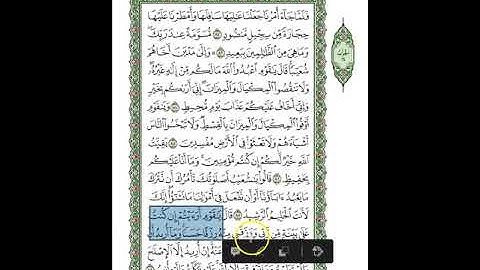 فَلَمَّا جَآءَ أَمْرُنَا جَعَلْنَا عَٰلِيَهَا سَافِلَهَا وَأَمْطَرْنَا عَلَيْهَا
حِجَارَةً مِّن سِجِّيلٍ مَّنضُودٍ ۝ مُّسَوَّمَةً عِندَ رَبِّكَ
وَمَا هِىَ مِنَ ٱلظَّٰلِمِينَ بِبَعِيدٍ ۝ وَإِلَىٰ مَدْيَنَ أَخَاهُمْ
شُعَيْبًا قَالَ يَٰقَوْمِ ٱعْبُدُوا۟ ٱللَّهَ مَا لَكُم مِّنْ إِلَٰهٍ غَيْرُهُۥ
وَلَا تَنقُصُوا۟ ٱلْمِكْيَالَ وَٱلْمِيزَانَ إِنِّىٓ أَرَىٰكُم بِخَيْرٍ
وَإِنِّىٓ أَخَافُ عَلَيْكُمْ عَذَابَ يَوْمٍ مُّحِيطٍ ۝ وَيَٰقَوْمِ
أَوْفُوا۟ ٱلْمِكْيَالَ وَٱلْمِيزَانَ بِٱلْقِسْطِ وَلَا تَبْخَسُوا۟ ٱلنَّاسَ
أَشْيَآءَهُمْ وَلَا تَعْثَوْا۟ فِى ٱلْأَرْضِ مُفْسِدِينَ ۝ بَقِيَّتُ
ٱللَّهِ خَيْرٌ لَّكُمْ إِن كُنتُم مُّؤْمِنِينَ وَمَآ أَنَا۠ عَلَيْكُم
بِحَفِيظٍ ۝ قَالُوا۟ يَٰشُعَيْبُ أَصَلَوٰتُكَ تَأْمُرُكَ أَن نَّتْرُكَ
مَا يَعْبُدُ ءَابَآؤُنَآ أَوْ أَن نَّفْعَلَ فِىٓ أَمْوَٰلِنَا مَا نَشَٰٓؤُا۟ إِنَّكَ
لَأَنتَ ٱلْحَلِيمُ ٱلرَّشِيدُ ۝ قَالَ يَٰقَوْمِ أَرَءَيْتُمْ إِن كُنتُ
عَلَىٰ بَيِّنَةٍ مِّن رَّبِّى وَرَزَقَنِى مِنْهُ رِزْقًا حَسَنًا وَمَآ أُرِيدُ
إِنْ أُرِيدُ إِلَّا ٱلْإِصْلَٰحَ